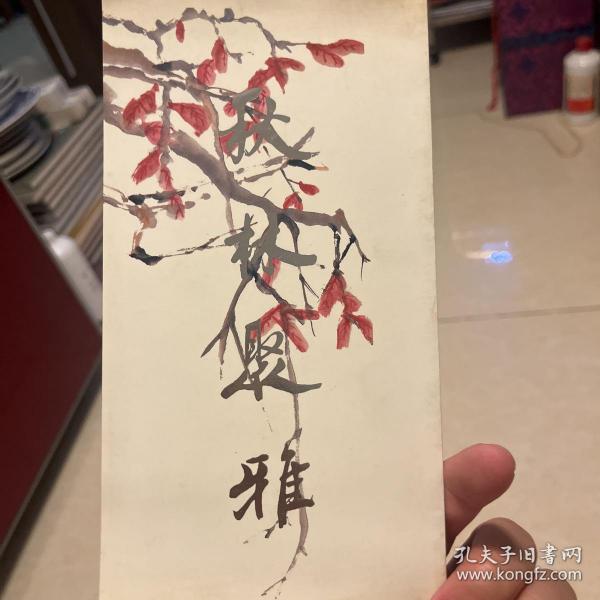 秋林聚雅
孔夫子旧書网
www.kongfz.com